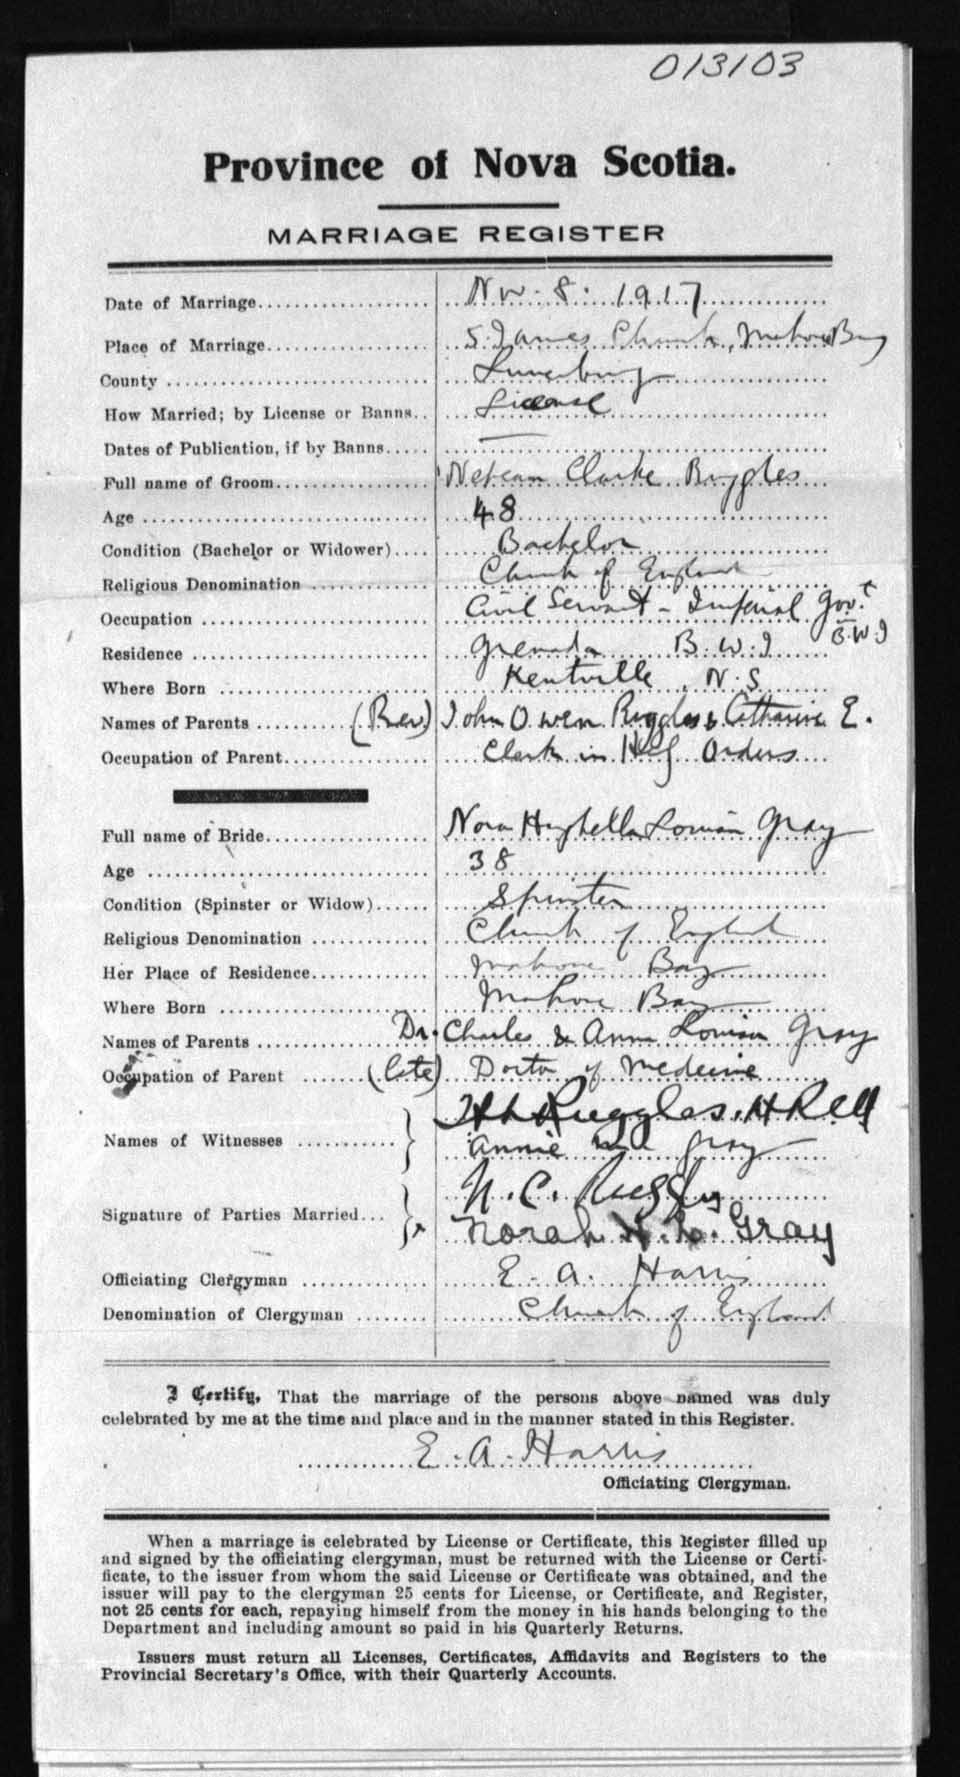 013103
Province of Nova Scotia.
MARRIAGE REGISTER
Date of Marriage Nov. 8. 1917
Place of Marriage S. James Church, Mahone Bay
County Lunenburg
How Married; by License or Banns License
Dates of Publication, if by Banns —
Full name of Groom Nepean Clarke Ruggles
Age 48
Condition (Bachelor or Widower) Bachelor
Religious Denomination Church of England
Occupation Civil Servant - Imperial Gov.t
B.W.I
Residence Grenada B.W.I
Where Born Kentville, N.S
Names of Parents (Rev) John Owen Ruggles & Catharine E.
Occupation of Parent Clerk in Holy Orders
Full name of Bride Nora Louisa Gray
Age 38
Condition (Spinster or Widow) Spinster
Religious Denomination Church of England
Her Place of Residence Mahone Bay
Where Born Mahone Bay
Names of Parents Dr. Charles & Anna Louisa Gray
Occupation of Parent (late) Doctor of Medicine
Names of Witnesses Ruggles.
Annie Gray
Signature of Parties Married N. C. Ruggles
x Norah H. L. Gray
Officiating Clergyman E. A. Harris
Denomination of Clergyman Church of England
I Certify, That the marriage of the persons above named was duly
celebrated by me at the time and place and in the manner stated in this Register.
E. A. Harris
Officiating Clergyman.
When a marriage is celebrated by License or Certificate, this Register filled up
and signed by the officiating clergyman, must be returned with the License or Certi-
ficate, to the issuer from whom the said License or Certificate was obtained, and the
issuer will pay to the clergyman 25 cents for License, or Certificate, and Register,
not 25 cents for each, repaying himself from the money in his hands belonging to the
Department and including amount so paid in his Quarterly Returns.
Issuers must return all Licenses, Certificates, Affidavits and Registers to the
Provincial Secretary's Office, with their Quarterly Accounts.